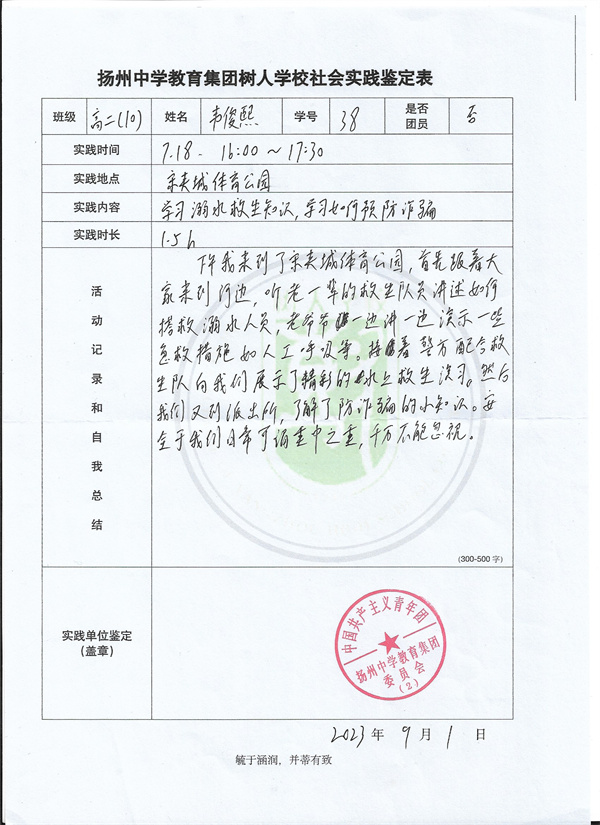 扬州中学教育集团树人学校社会实践鉴定表
班级 高二(10) 姓名 韦俊熙 学号 38 是否团员 否
实践时间 7.18. 16:00～17:30
实践地点 宋夹城体育公园
实践内容 学习溺水救生知识,学习如何预防诈骗
实践时长 1.5h
活动记录和自我总结
下午我来到了宋夹城体育公园,首先跟着大
家来到河边,听老一辈的救生队员讲述如何
搭救溺水人员,老爷爷一边讲一边演示一些
急救措施如人工呼吸等。接着警方配合救
生队向我们展示了精彩的水上救生演习。然后
我们又到派出所,了解了防诈骗的小知识。安
全于我们日常可谓重中之重,千万不能忽视。
(300-500字)
实践单位鉴定
(盖章)
中国共产主义青年团
扬州中学教育集团
委员会
(2)
2023年9月1日
毓于涵润,并蒂有致